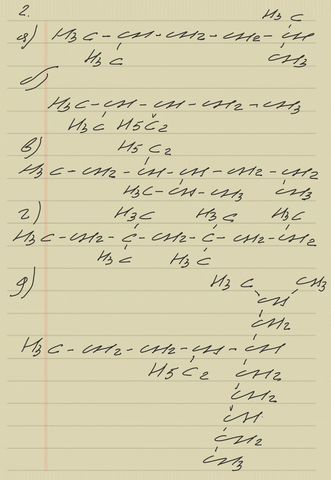 2.
H3C
а) H3C - CH - CH2 - CH2 - CH
H3C CH3
б)
H3C - CH - CH - CH2 - CH3
H3C H5C2
в) H5C2
H3C - CH2 - CH - CH - CH2 - CH2
H3C - CH - CH3 CH3
г) H3C H3C H3C
H3C - CH2 - C - CH2 - C - CH2 - CH2
H3C H3C
д) H3C CH3
CH
CH2
H3C - CH2 - CH2 - CH - CH
H5C2 CH2
CH2
CH
CH2
CH3